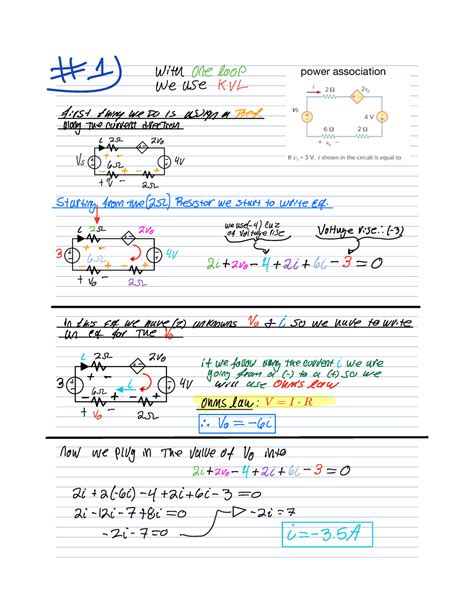 #1)
with one loop
we use KVL
power association
i 2 Ω 2v₀
vs 4 V
6 Ω 2 Ω
If vs = 3 V, i shown in the circuit is equal to
first thing we do is assign a Ref.
along the current direction
i 2Ω 2v₀
Vs 6Ω 4V
+ V - 2Ω
Starting from the (2Ω) Resistor we start to write Eq.
we use(-4) Cuz
of voltage rise
Voltage rise ∴ (-3)
i 2Ω 2v₀
3 6Ω 4V
+ V₀ - 2Ω
2i+2v₀-4+2i+6i-3=0
In this Eq we have (2) unknowns V₀ & i so we have to write
an eq for the V₀
i 2Ω 2v₀
3 6Ω i 4V
+ V₀ - 2Ω
if we follow along the current i we are
going from a (-) to a (+) so we
will use Ohm's law
ohms law: V = I · R
∴ V₀ = -6i
now we plug in the value of V₀ into
2i+2v₀-4+2i+6i-3=0
2i+2(-6i)-4+2i+6i-3=0
2i-12i-7+8i=0
-2i=7
-2i-7=0
i=-3.5A